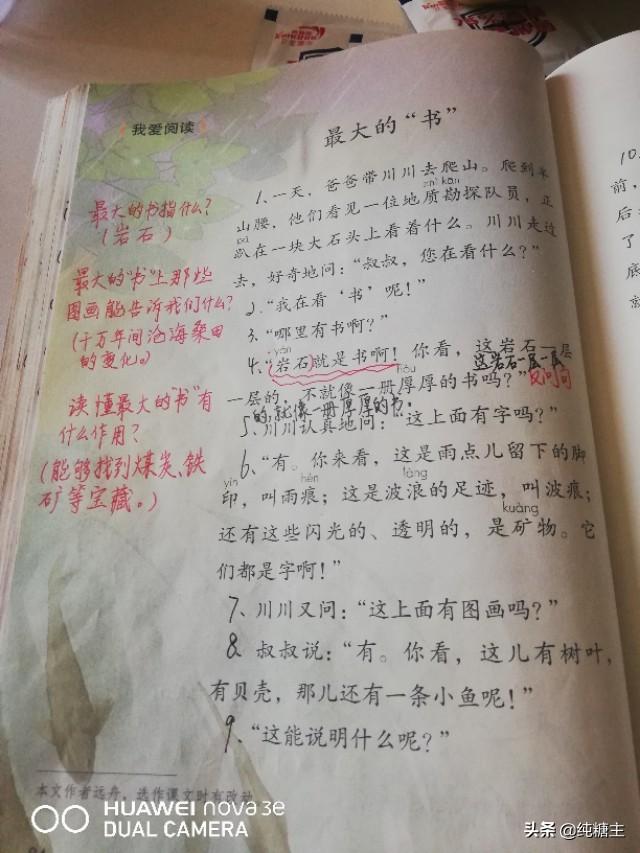 我爱阅读
最大的“书”
最大的书指什么？
（岩石）
最大的“书”上那些
图画能告诉我们什么？
（千万年间沧海桑田
的变化。）
读懂最大的“书”有
什么作用？
（能够找到煤炭、铁
矿等宝藏。）
1、一天，爸爸带川川去爬山。爬到半
zhì kān
山腰，他们看见一位地质勘探队员，正
pā
趴在一块大石头上看着什么。川川走过
去，好奇地问：“叔叔，您在看什么？”
2、“我在看‘书’呢！”
3、“哪里有书啊？”
yán
4、“岩石就是书啊！你看，这岩石一层
这岩石一层一层
hòu
一层的，不就像一册厚厚的书吗？”反问句
的，就像一册厚厚的书。
5、川川认真地问：“这上面有字吗？”
6、“有。你来看，这是雨点儿留下的脚
yìn hén làng
印，叫雨痕；这是波浪的足迹，叫波痕；
kuàng
还有这些闪光的、透明的，是矿物。它
们都是字啊！”
7、川川又问：“这上面有图画吗？”
8、叔叔说：“有。你看，这儿有树叶，
有贝壳，那儿还有一条小鱼呢！”
9、“这能说明什么呢？”
本文作者远舟，选作课文时有改动
10、
前，
后
了
底
HUAWEI nova 3e
DUAL CAMERA
头条 @纯糖主